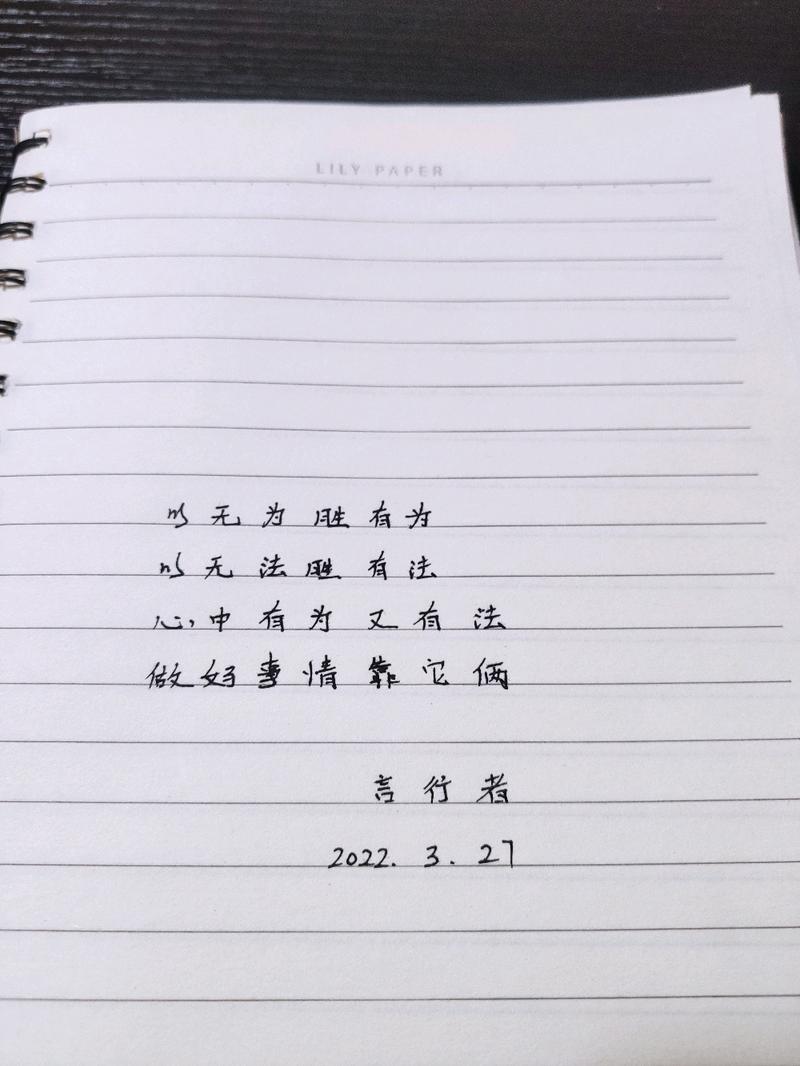 LILY PAPER
以无为胜有为
以无法胜有法
心中有为又有法
做好事情靠它俩
言行者
2022.3.27